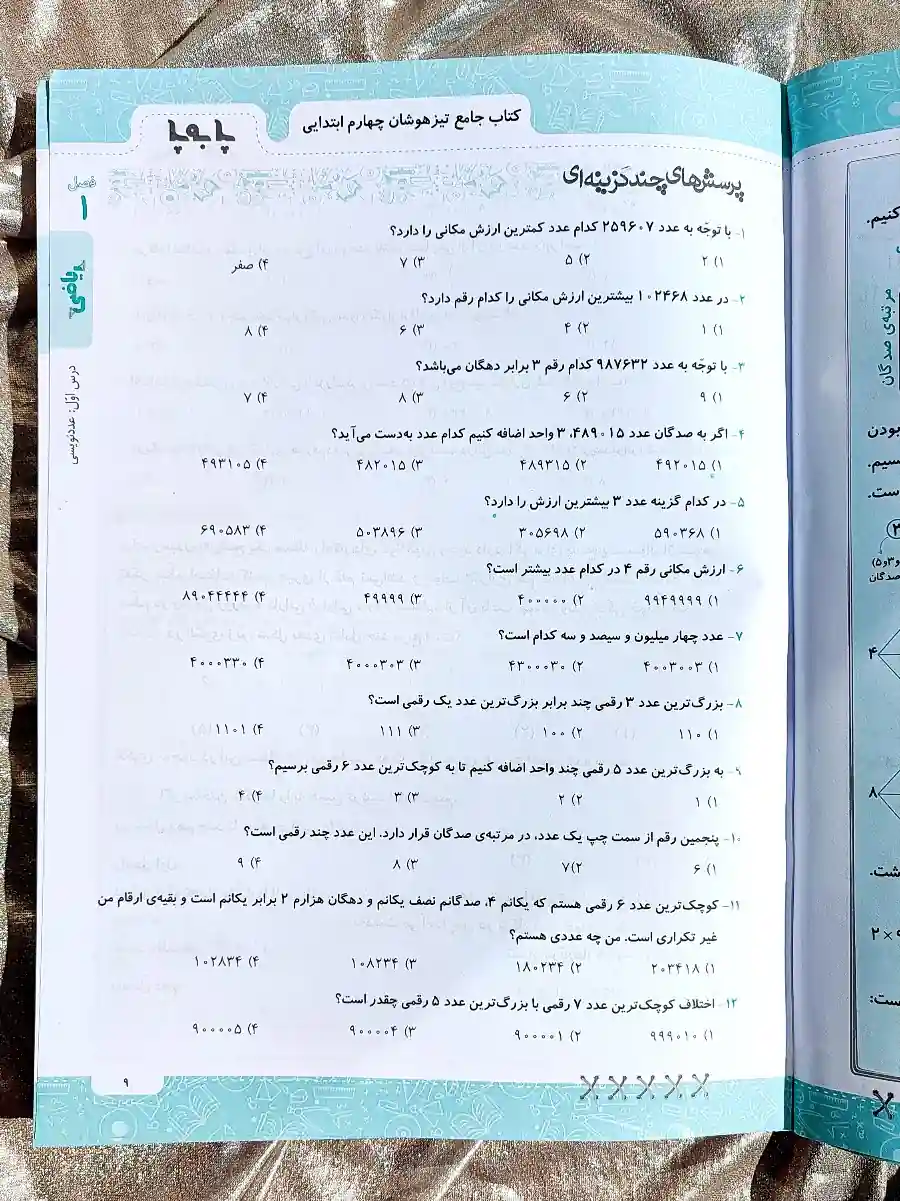 کتاب جامع تیزهوشان چهارم ابتدایی
پا به پا
فصل
۱
ریاضی
درس اوّل: عددنویسی
پرسش‌های چند گزینه‌ای
۱- با توجّه به عدد ۲۵۹۶۰۷ کدام عدد کمترین ارزش مکانی را دارد؟
۱) ۲ ۲) ۵ ۳) ۷ ۴) صفر
۲- در عدد ۱۰۲۴۶۸ بیشترین ارزش مکانی را کدام رقم دارد؟
۱) ۱ ۲) ۴ ۳) ۶ ۴) ۸
۳- با توجّه به عدد ۹۸۷۶۳۲ کدام رقم ۳ برابر دهگان می‌باشد؟
۱) ۹ ۲) ۶ ۳) ۸ ۴) ۷
۴- اگر به صدگان عدد ۴۸۹۰۱۵، ۳ واحد اضافه کنیم کدام عدد به‌دست می‌آید؟
۱) ۴۹۲۰۱۵ ۲) ۴۸۹۳۱۵ ۳) ۴۸۲۰۱۵ ۴) ۴۹۳۱۰۵
۵- در کدام گزینه عدد ۳ بیشترین ارزش را دارد؟
۱) ۵۹۰۳۶۸ ۲) ۳۰۵۶۹۸ ۳) ۵۰۳۸۹۶ ۴) ۶۹۰۵۸۳
۶- ارزش مکانی رقم ۴ در کدام عدد بیشتر است؟
۱) ۹۹۴۹۹۹۹ ۲) ۴۰۰۰۰۰ ۳) ۴۹۹۹۹ ۴) ۸۹۰۴۴۴۴۴
۷- عدد چهار میلیون و سیصد و سه کدام است؟
۱) ۴۰۰۳۰۰۳ ۲) ۴۳۰۰۰۳۰ ۳) ۴۰۰۰۳۰۳ ۴) ۴۰۰۰۳۳۰
۸- بزرگ‌ترین عدد ۳ رقمی چند برابر بزرگ‌ترین عدد یک رقمی است؟
۱) ۱۱۰ ۲) ۱۰۰ ۳) ۱۱۱ ۴) ۱۱۰۱
۹- به بزرگ‌ترین عدد ۵ رقمی چند واحد اضافه کنیم تا به کوچک‌ترین عدد ۶ رقمی برسیم؟
۱) ۱ ۲) ۲ ۳) ۳ ۴) ۴
۱۰- پنجمین رقم از سمت چپ یک عدد، در مرتبه‌ی صدگان قرار دارد. این عدد چند رقمی است؟
۱) ۶ ۲) ۷ ۳) ۸ ۴) ۹
۱۱- کوچک‌ترین عدد ۶ رقمی هستم که یکانم ۴، صدگانم نصف یکانم و دهگان هزارم ۲ برابر یکانم است و بقیه‌ی ارقام من
غیر تکراری است. من چه عددی هستم؟
۱) ۲۰۳۴۱۸ ۲) ۱۸۰۲۳۴ ۳) ۱۰۸۲۳۴ ۴) ۱۰۲۸۳۴
۱۲- اختلاف کوچک‌ترین عدد ۷ رقمی با بزرگ‌ترین عدد ۵ رقمی چقدر است؟
۱) ۹۹۹۰۱۰ ۲) ۹۰۰۰۰۱ ۳) ۹۰۰۰۰۴ ۴) ۹۰۰۰۰۵
۹
مرتبه‌ی صدگان
بودن
۴
۸